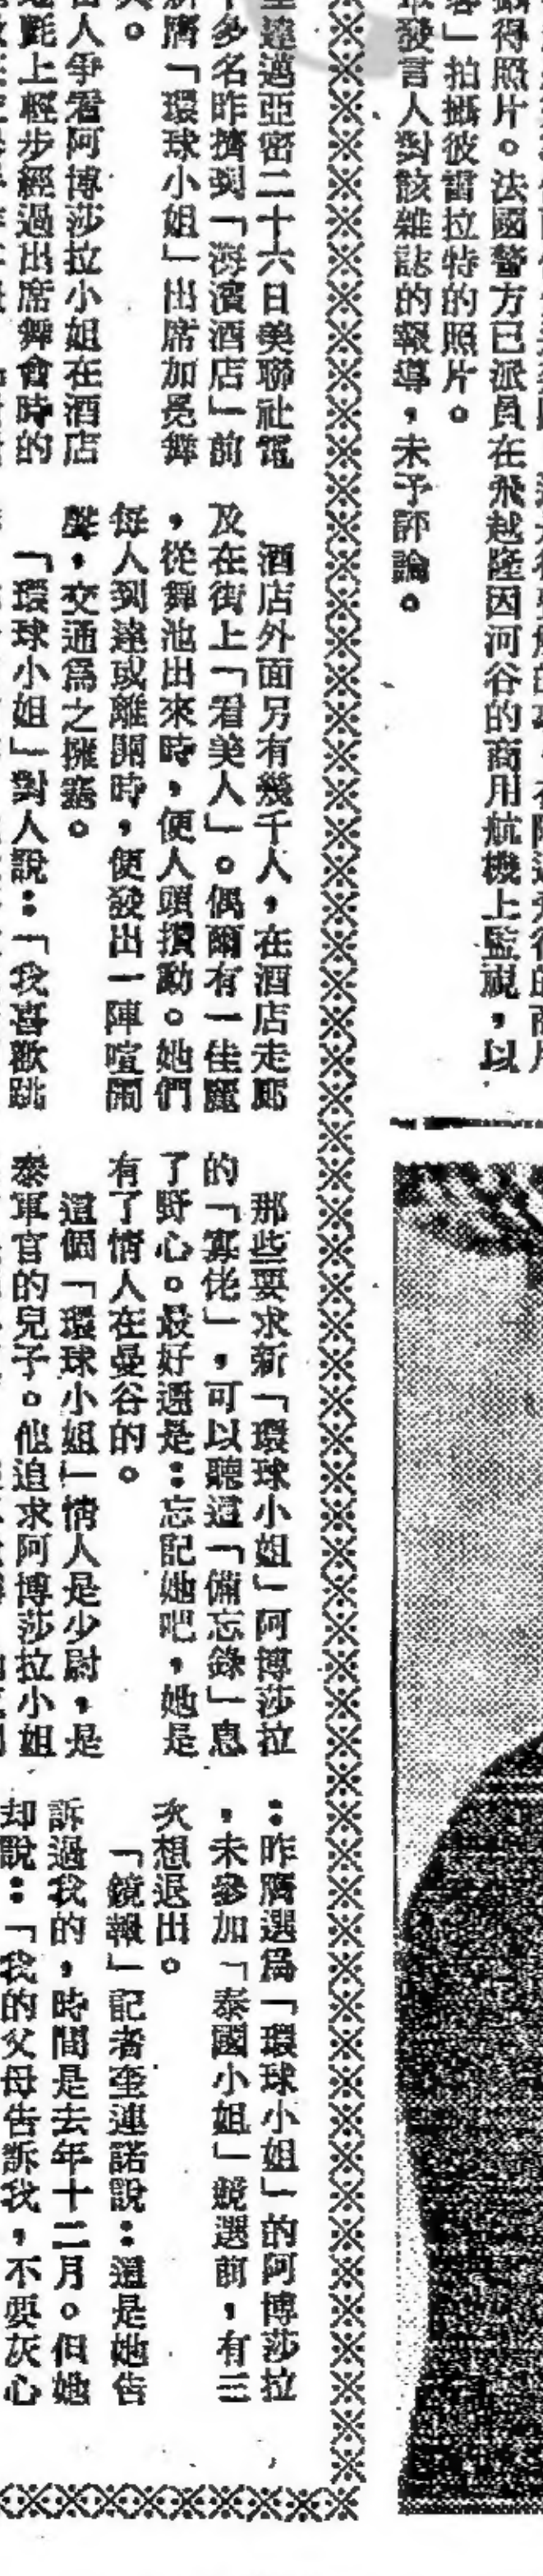 攝得照片。法國警方已派員在飛越隆因河谷的商用航機上監視，以
」拍攝彼雷拉特的照片。
發言人對該雜誌的報導，未予評論。
達邁亞密二十六日美聯社電
多名昨擠到「海濱酒店」前
膺「環球小姐」出席加冕舞
人爭看阿博莎拉小姐在酒店
氈上輕步經過出席舞會時的
酒店外面另有幾千人，在酒店走廊
及在街上「看美人」。偶爾有一佳麗
，從舞池出來時，便人頭攢動。她們
每人到達或離開時，便發出一陣喧鬧
聲，交通爲之擁塞。
「環球小姐」對人說：「我喜歡跳
那些要求新「環球小姐」阿博莎拉
的「寡佬」，可以聽這「備忘錄」息
了野心。最好還是：忘記她吧，她是
有了情人在曼谷的。
這個「環球小姐」情人是少尉，是
泰軍官的兒子。他追求阿博莎拉小姐
：昨膺選爲「環球小姐」的阿博莎拉
，未參加「泰國小姐」競選前，有三
次想退出。
「鏡報」記者奎連諾說：這是她告
訴過我的，時間是去年十二月。但她
却說：「我的父母告訴我，不要灰心